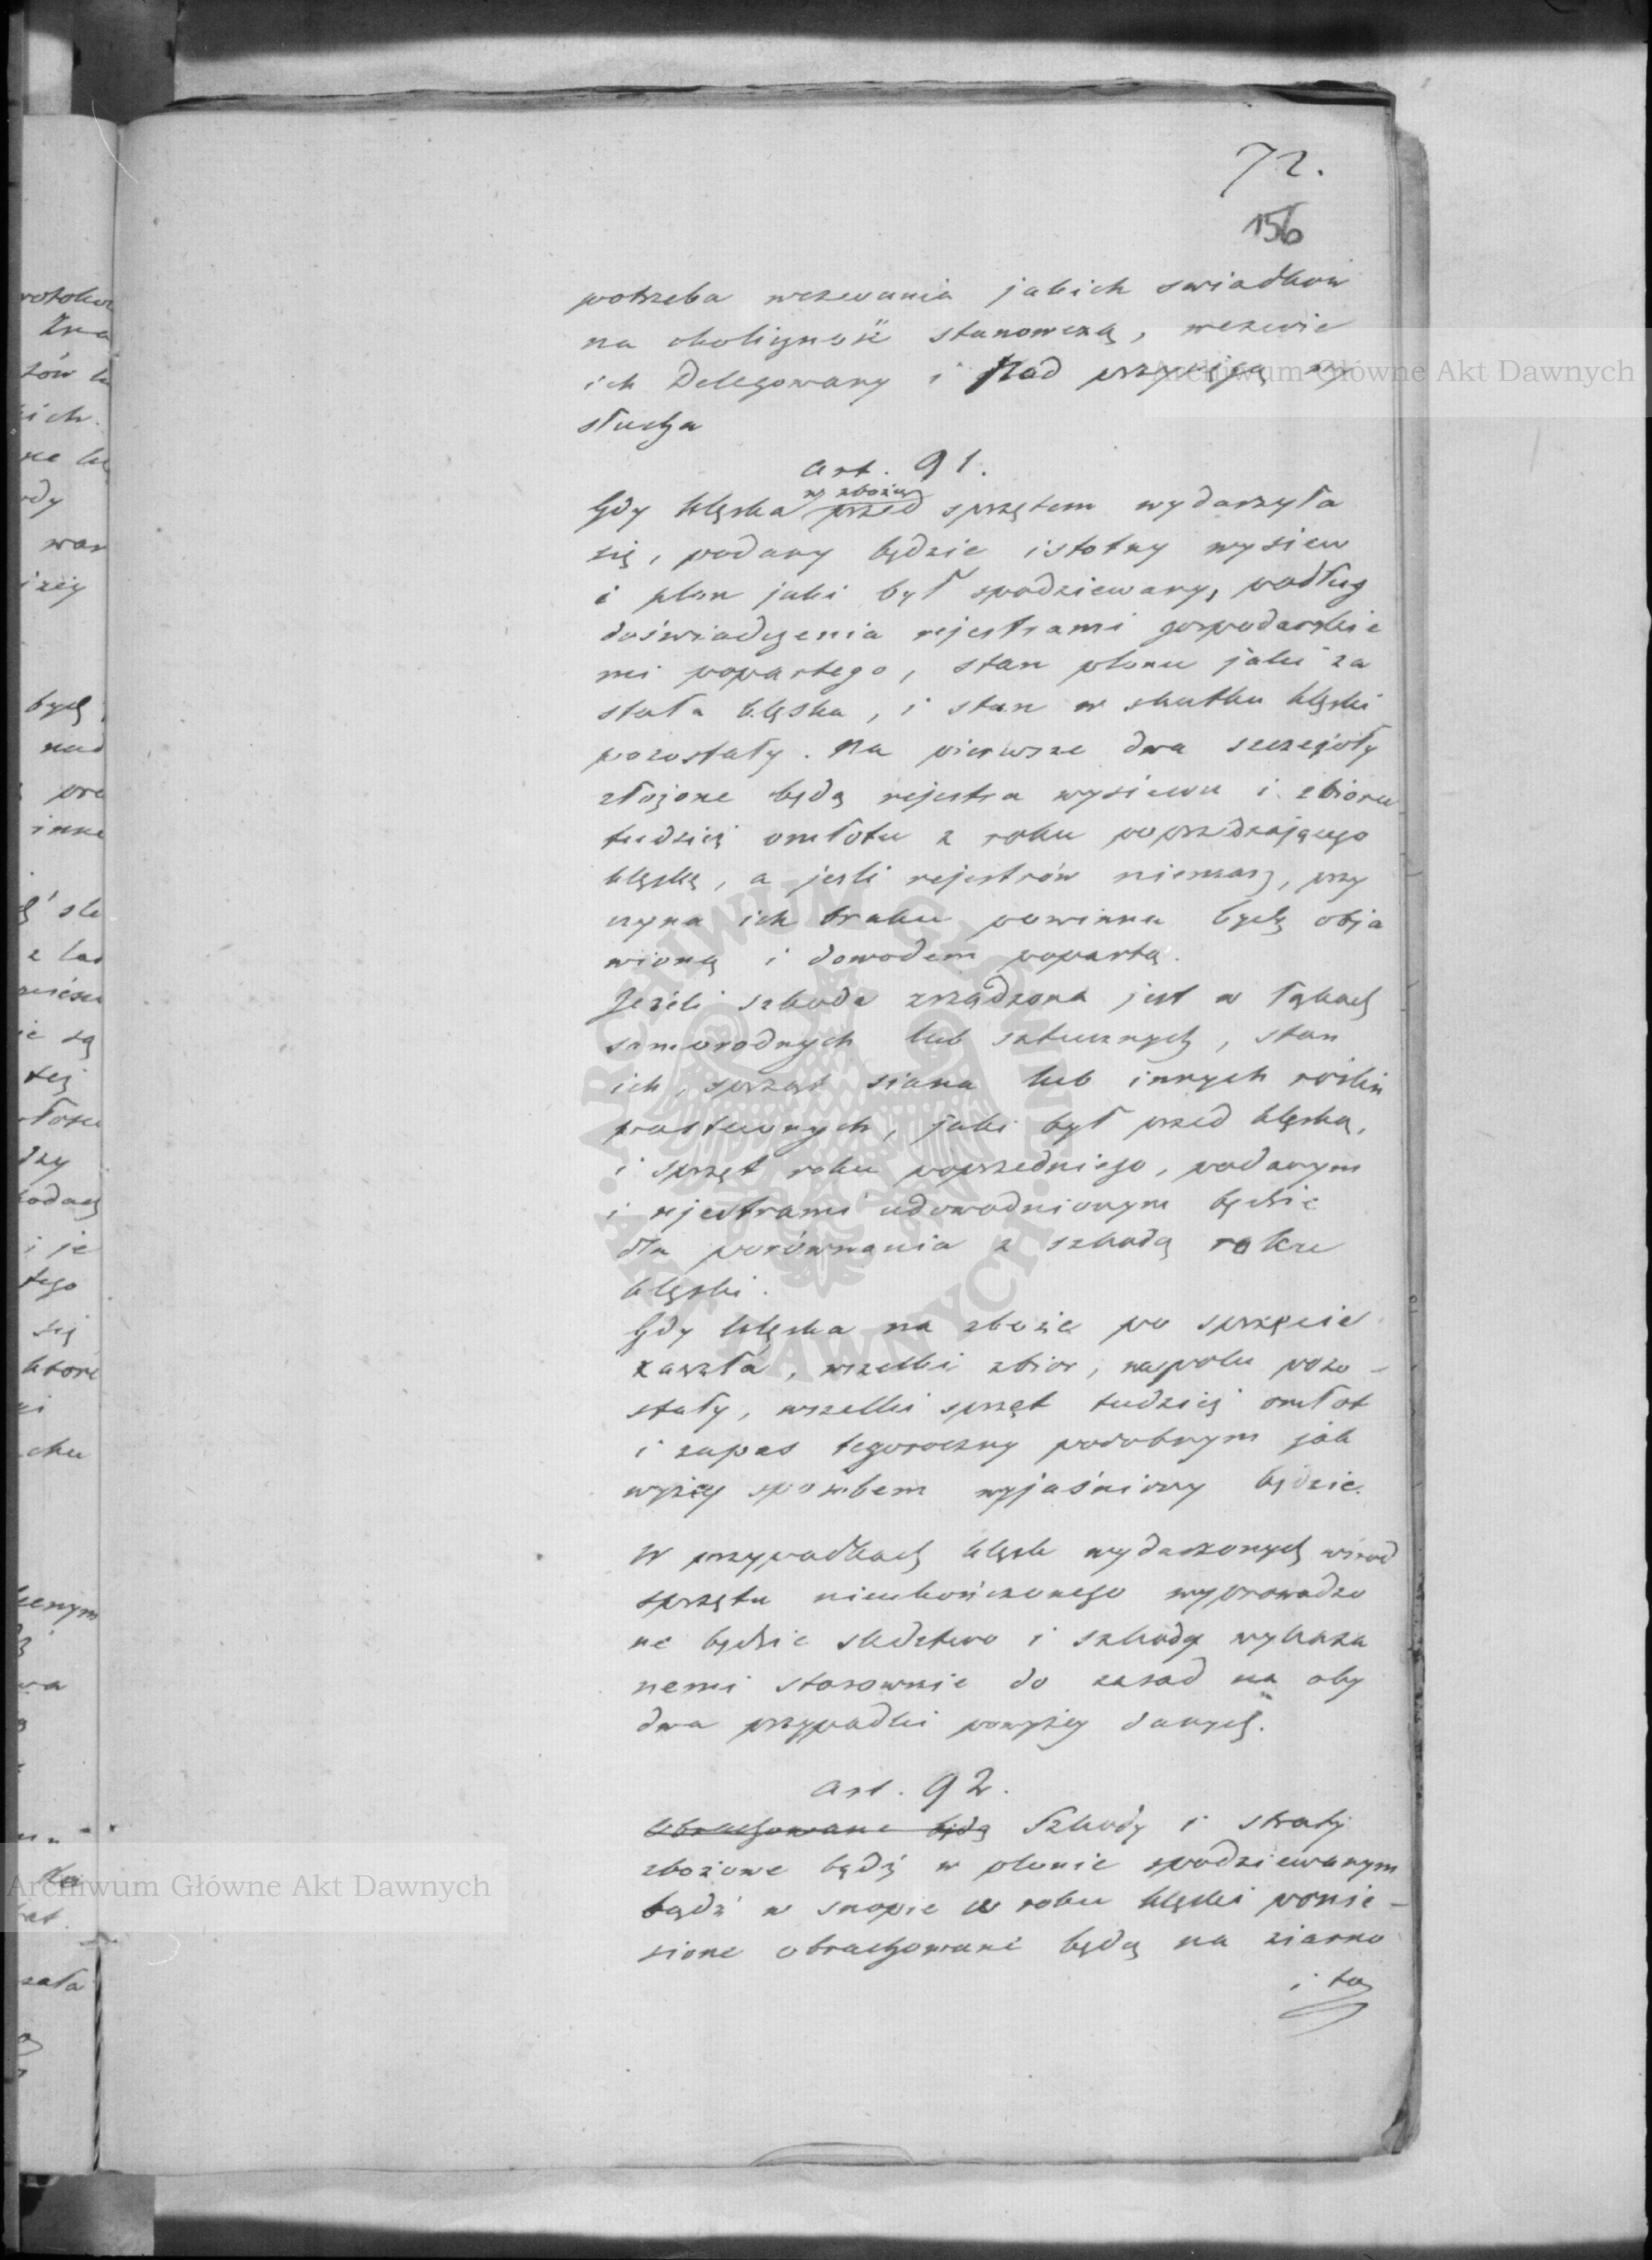 72.
156
potrzeba wezwania jakich swiadków
na okoliczność stanowczą, wezwie
ich Delegowany i pod przysięgą wy
słucha
Art. 91.
w zbożu
Gdy klęska przed sprzętem wydarzyła
się, podany będzie istotny wysiew
i plon jaki był spodziewany, podług
doświadczenia rejestrami gospodarskie
mi popartego, stan plonu jaki za
stała klęska, i stan w skutku klęski
pozostały. Na pierwsze dwa szczegóły
złożone będą rejestra wysiewu i zbioru
tudzież omłotu z roku poprzedzającego
klęskę, a jeśli rejestrów niemasz, przy
czyna ich braku powinna bydź obja
wioną i dowodem popartą.
Jeżeli szkoda zrządzona jest w łąkach
samorodnych lub sztucznych, stan
ich, sprzęt siana lub innych roślin
pastewnych, jaki był przed klęską,
i sprzęt roku poprzedniego, podanym
i rejestrami udowodnionym będzie
dla porównania z szkodą roku
klęski.
Gdy klęska na zboże po sprzęcie
zaszła, wszelki zbior, na polu pozo-
stały, wszelki sprzęt tudzież omłot
i zapas tegoroczny podobnym jak
wyżey sposobem wyjaśniony będzie.
W przypadkach klęsk wydarzonych wśrod
sprzętu nieukończonego wyprowadzo
ne będzie sledztwo i szkody wykaza
nemi stosownie do zasad na oby
dwa przypadki powyżey danych.
Art. 92.
Obrachowane będą Szkody i straty
zbożowe bądź w plonie spodziewanym
bądź w snopie w roku klęski ponie-
sione obrachowane będą na ziarno
i ta
Archiwum Główne Akt Dawnych
Archiwum Główne Akt Dawnych
ARCHIWUM GŁÓWNE AKT DAWNYCH